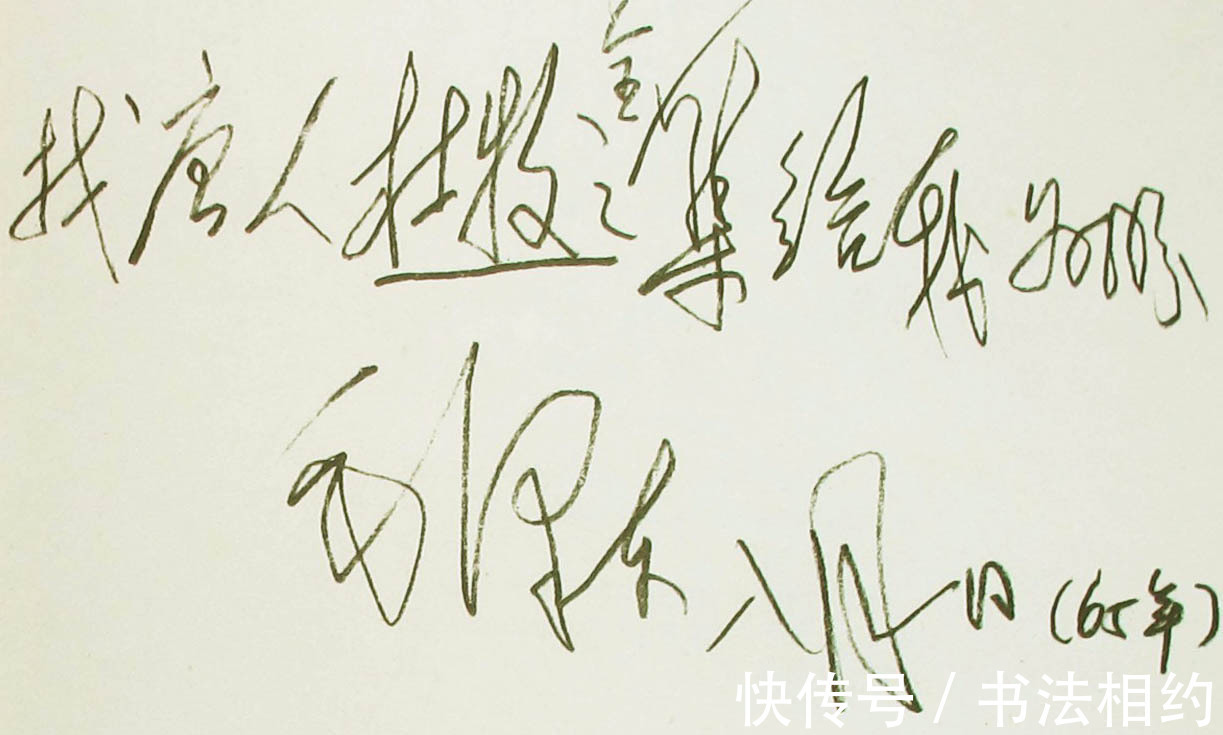 找唐人杜牧之全集给我为盼
毛泽东 八月一日（65年）
快传号 / 书法相约